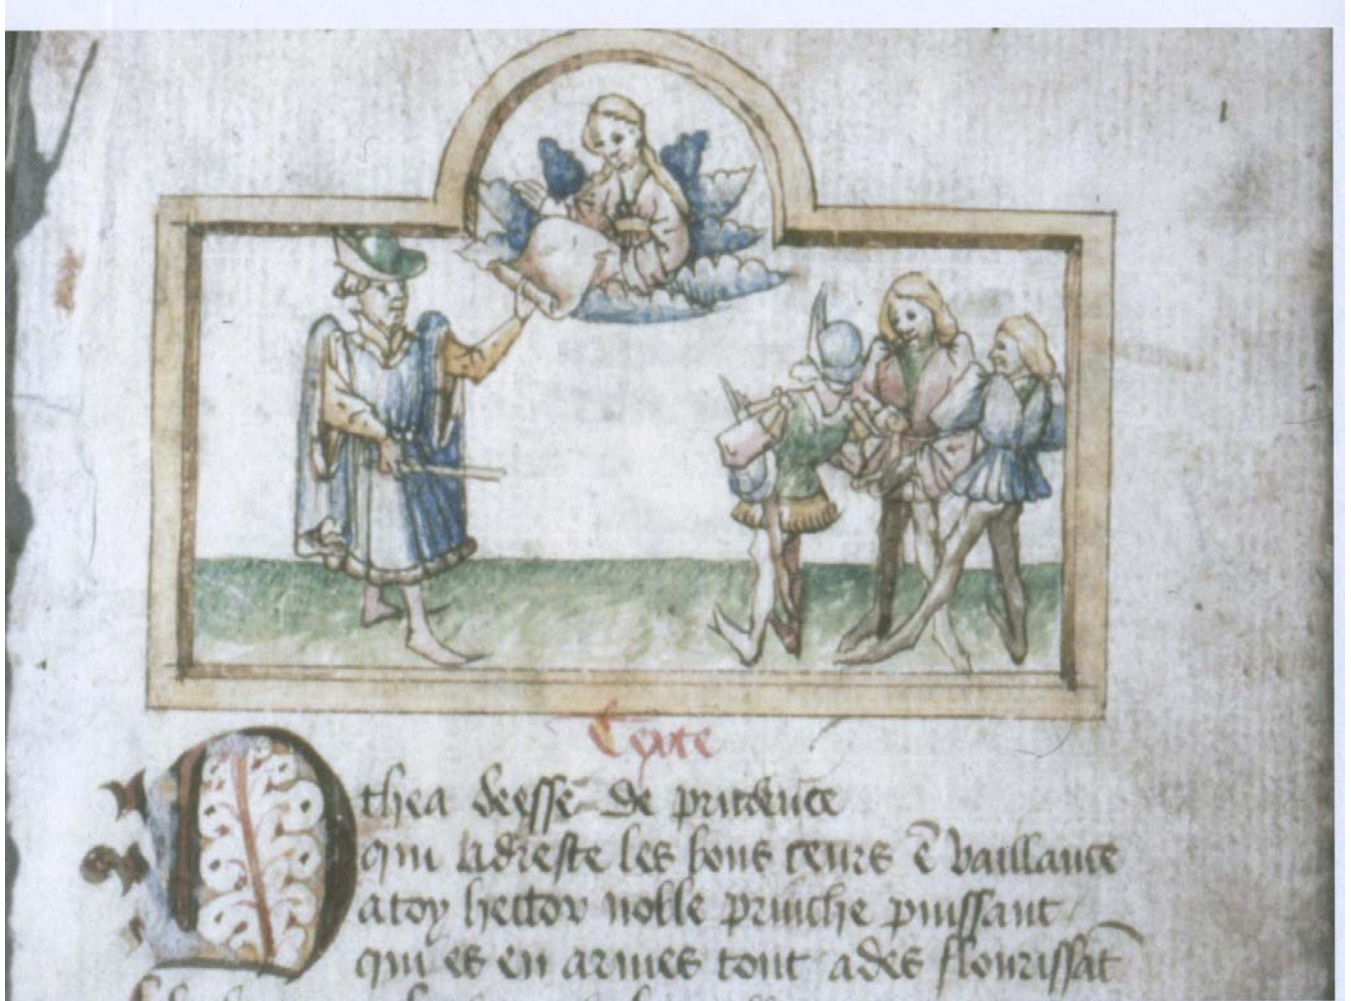 Texte
Othea deesse de prudẽce
qui ladreste les bons ceurs ẽ vaillance
a toy hector noble prinche puissant
qui es en armes tout ades flourissãt